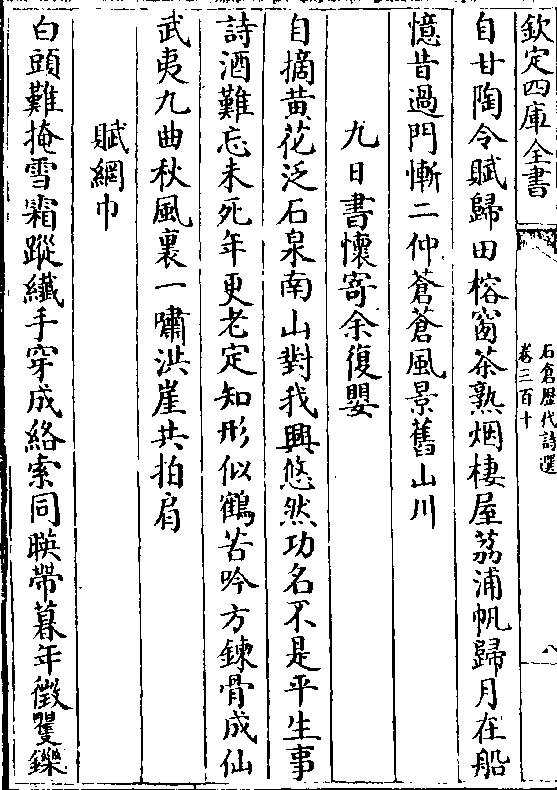 欽定四庫全書
石倉歴代詩選
卷三百十
八
自甘陶令賦歸田榕窗茶熟烟棲屋荔浦帆歸月在船
憶昔過門慚二仲蒼蒼風景舊山川
九日書懷寄余復嬰
自摘黄花泛石泉南山對我興悠然功名不是平生事
詩酒難忘未死年更老定知形似鶴苦吟方鍊骨成仙
武夷九曲秋風裏一嘯洪崖共拍肩
賦網巾
白頭難掩雪霜蹤纎手穿成絡索同暎帶暮年徵矍鑠